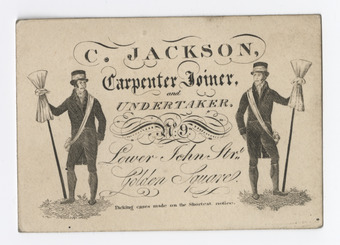 C. JACKSON,
Carpenter Joiner,
and
UNDERTAKER,
No. 9
Lower John Strt.
Golden Square
Packing cases made on the Shortest notice.